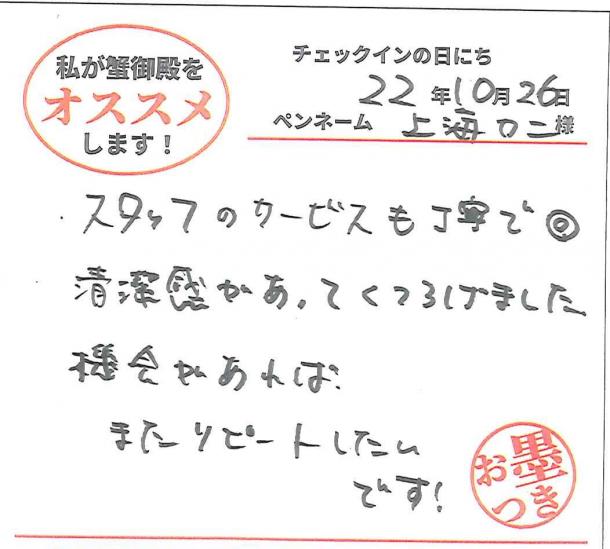 私が蟹御殿を
オススメ
します！
チェックインの日にち
22 年 10 月 26 日
ペンネーム 上海カニ 様
・スタッフのサービスも丁寧で◎
清潔感があってくつろげました
機会があれば、
またリピートしたい
です!
お墨
つき